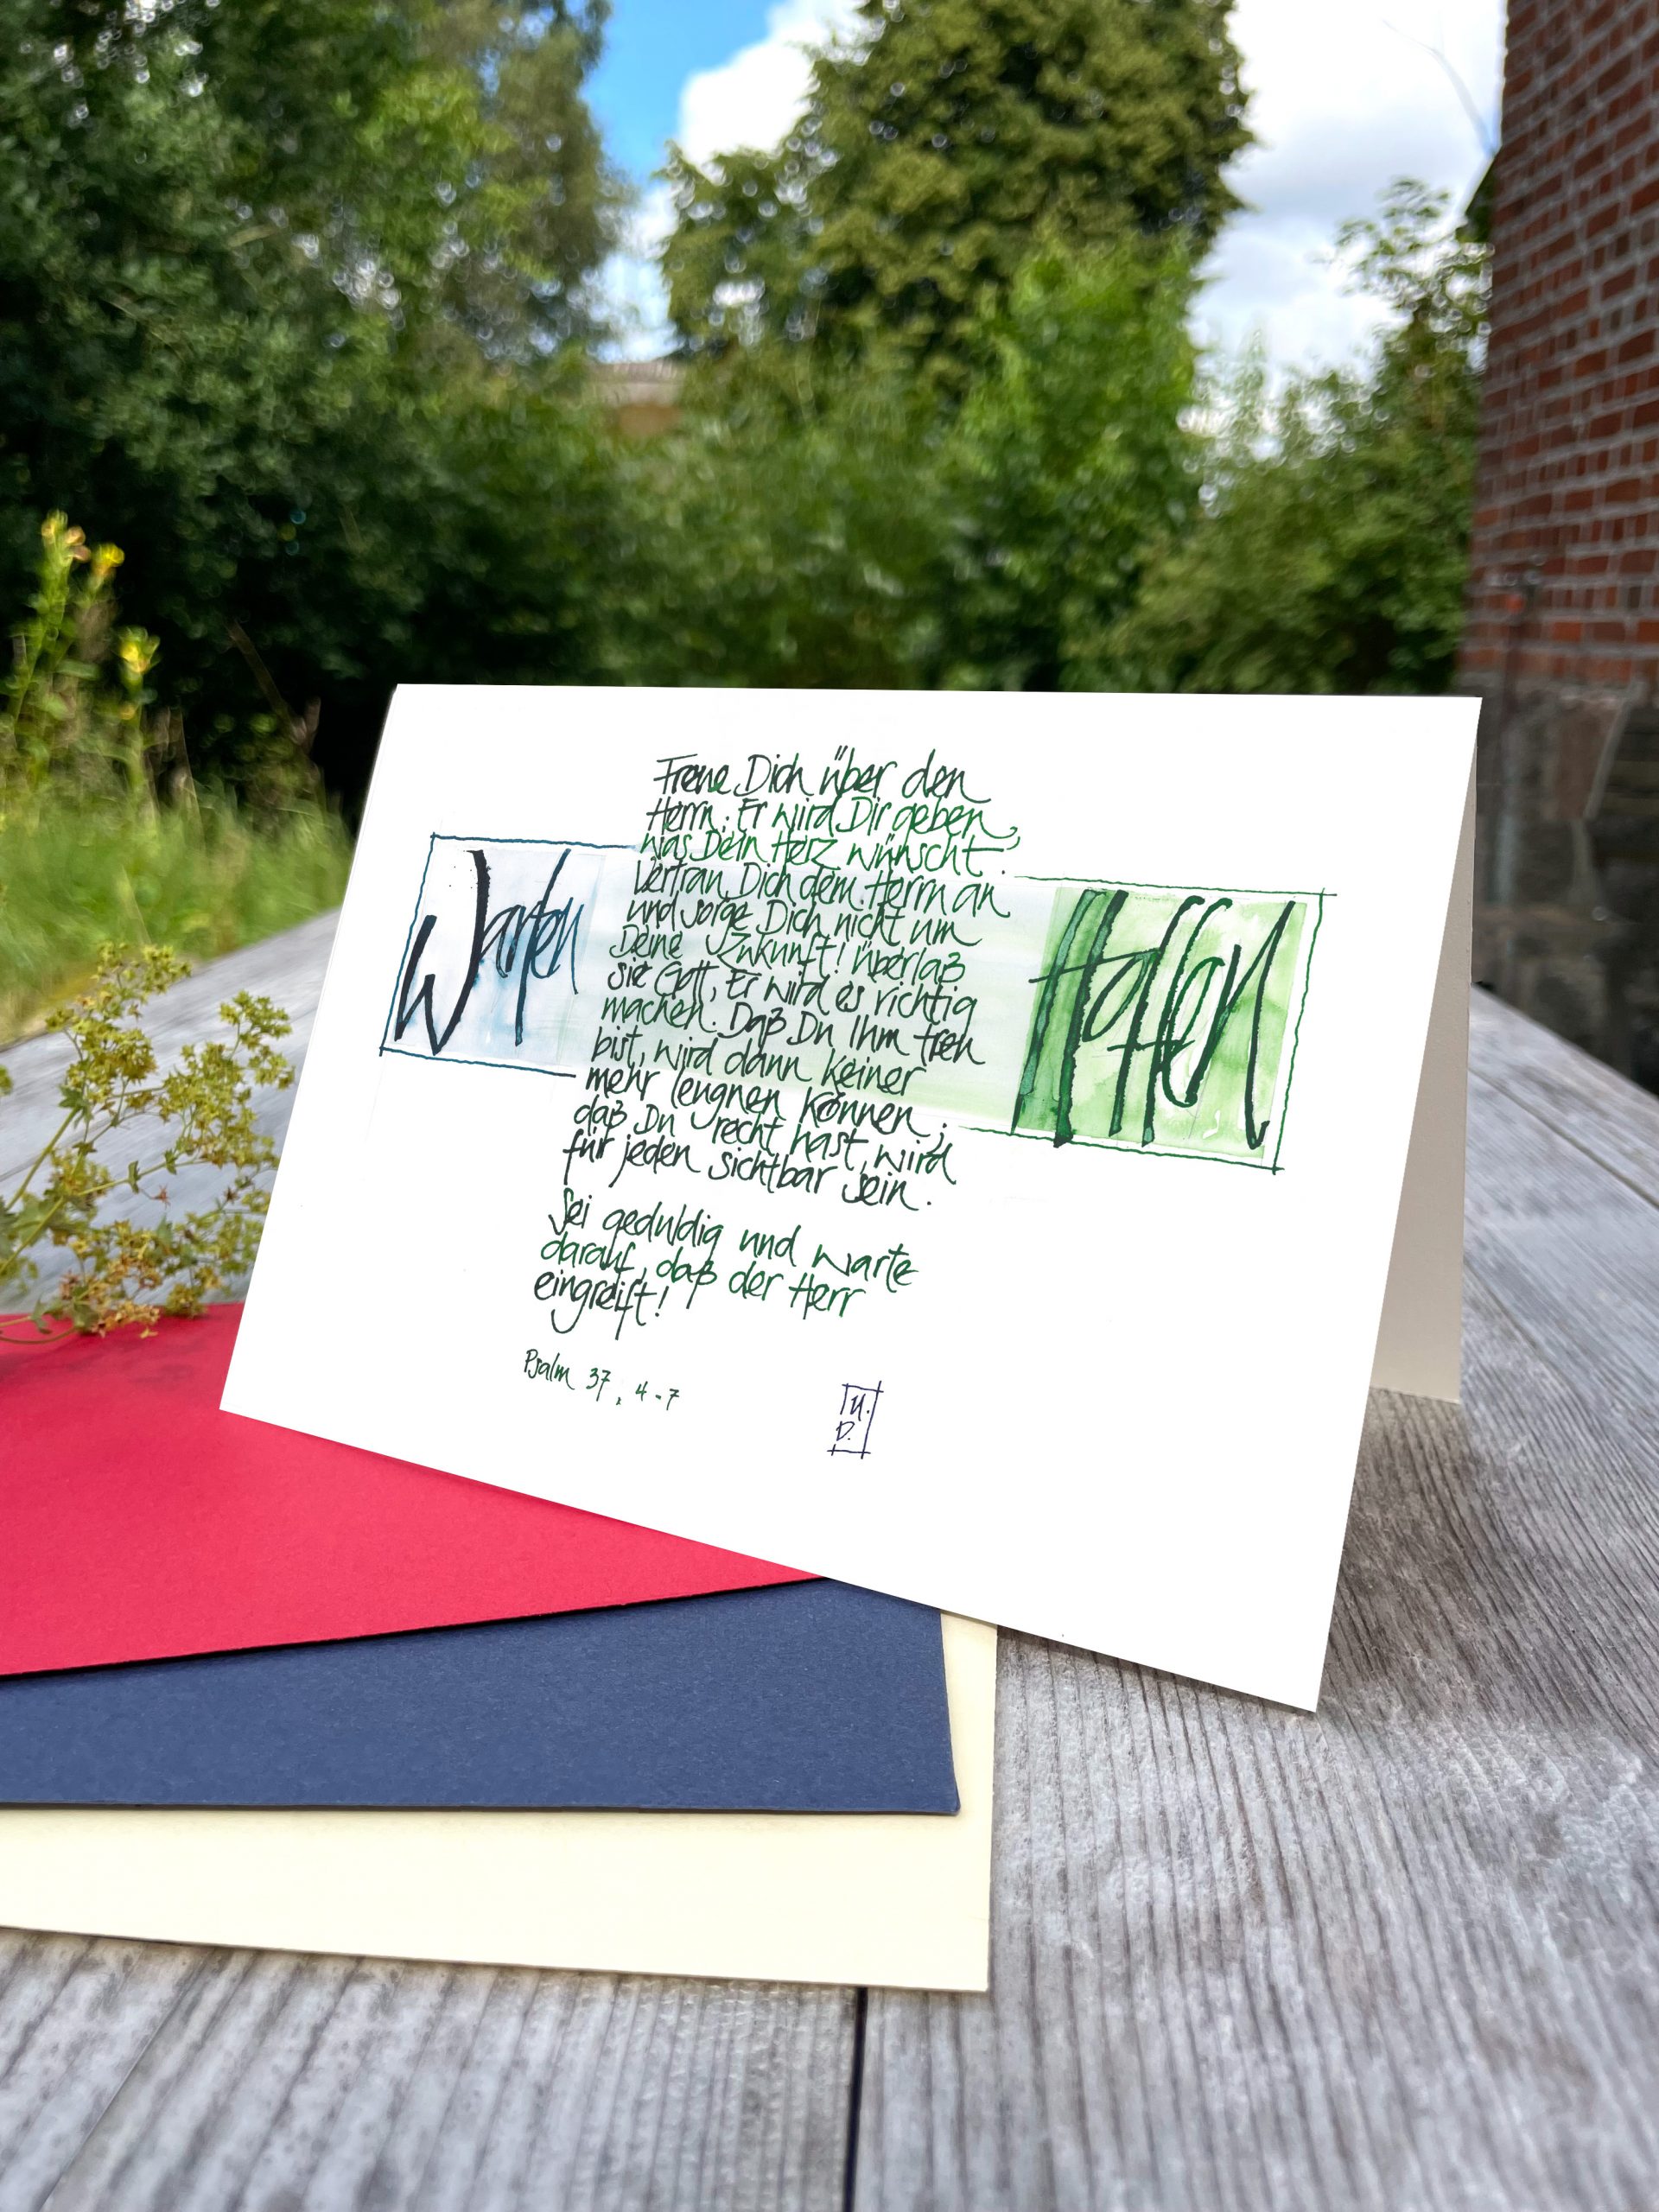 Freue Dich über den
Herrn; Er wird Dir geben,
was Dein Herz wünscht.
Vertrau Dich dem Herrn an
und sorge Dich nicht um
Deine Zukunft! Überlaß
sie Gott, Er wird es richtig
machen. Daß Du Ihm treu
bist, wird dann keiner
mehr leugnen können;
daß Du recht hast, wird
für jeden sichtbar sein.
Sei geduldig und warte
darauf, daß der Herr
eingreift!
Psalm 37, 4-7
Warten
Hoffen